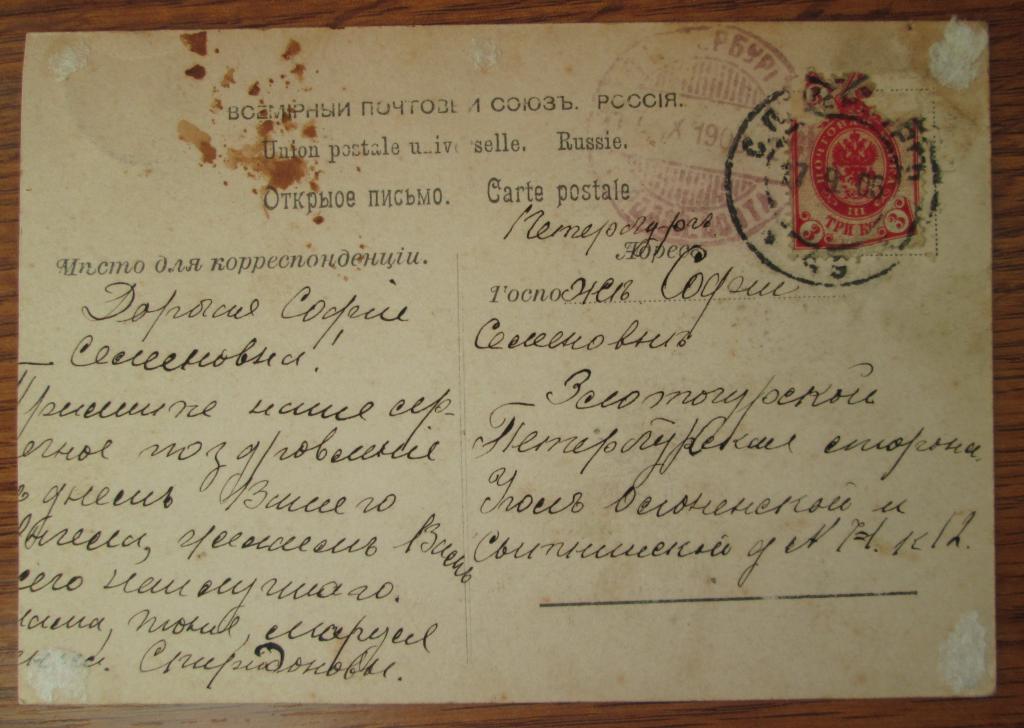 ВСЕМІРНЫЙ ПОЧТОВЫЙ СОЮЗЪ. РОССІЯ.
Union postale universelle. Russie.
Открытое письмо. Carte postale
Мѣсто для корреспонденціи.
Дорогая Софія
Семеновна!
Примите наше сер-
ечное поздровленіе
ъ днемъ Вашего
Ангела, желаемъ Вамъ
сего наилучшаго.
мама, Тоня, Маруся
Спиридоновы.
Петербургъ
Адресъ
Госпожѣ Софіи
Семеновнѣ
Златогурской
Петербургская сторона
Уголъ и
Сытнинской д №
С.П.
7 9 05
ТРИ КОП
3 III 3
РБУРГ
X 190